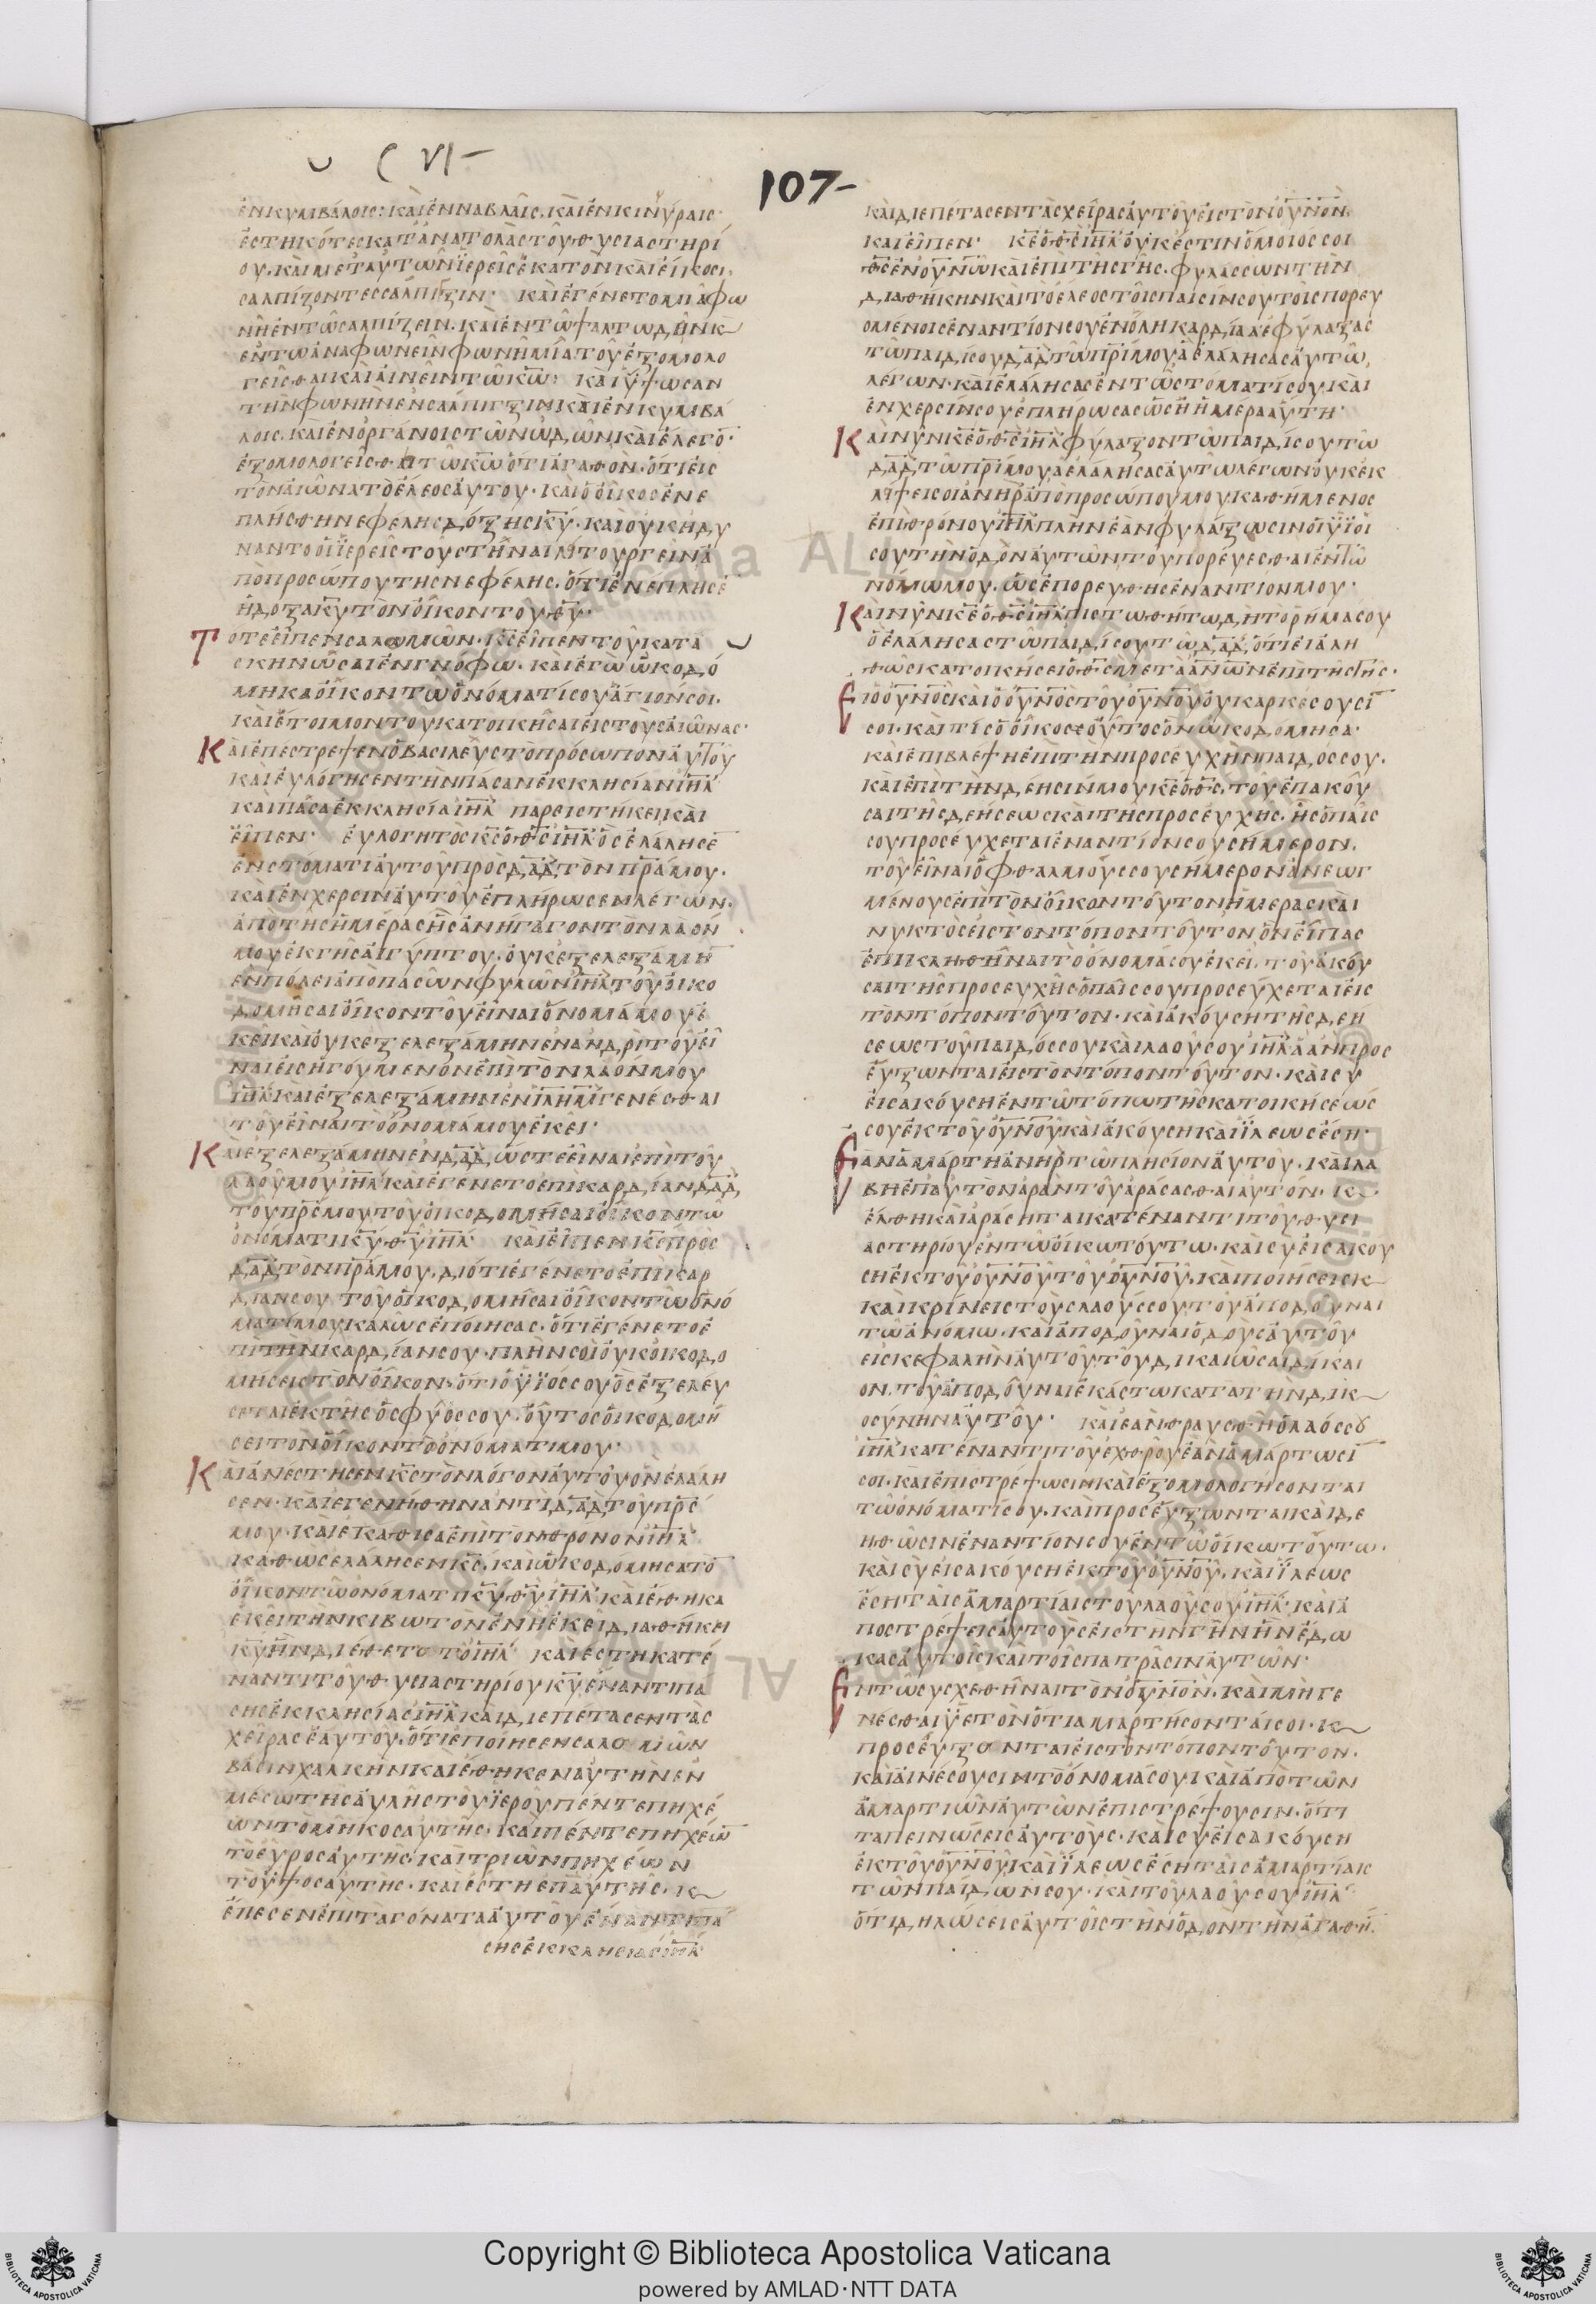 C VI-
107-
ἐνκυμβάλοις· κὰιἐνναβλαῖς. κὰιἐνκινύραις·
ἑστηκότεσκατἀνατολὰστοῦθυσιαστηρί
ου. κὰιμετἀυτῶνϊερεῖσἑκατὸνκὰιἐίκοσι.
σαλπίζοντεσσάλπιγξιν· κὰιἐγένετομίαφω
νὴἐντῶσαλπίζειν. κὰιἐντῶψαλτωδεῖνκ
ἐντωἀναφωνεῖνφωνῆμίατοῦἐξομολο
γεῖσθαικὰιἀινεῖντῶκ̅ω̅· κὰιὕψωσαν
τὴνφωνὴνἐνσάλπιγξινκὰιἐνκυμβά
λοις. κὰιἐνὀργάνοιστῶνὠδῶν. κὰιἔλεγο̅·
ἐξομολογεῖσθετῶκ̅ω̅ὅτιἀγαθὸν. ὅτιἐις
τὸναἰῶνατὸἔλεοσἀυτοῦ· κὰιὁὀῖκοσἐνε
πλήσθηνεφέλησδόξησκ̅υ̅. κὰιοὐκἠδύ
ναντοὁιϊερεῖστοῦστῆναιλιτουργεῖνἀ
πὸπροσώπουτῆσνεφέλης. ὅτιἐνέπλησε
ἡδόξακ̅υ̅τὸνὀῖκοντοῦθ̅υ̅·
Τότεἐῖπενσαλομων. κ̅σ̅ἐῖπεντοῦκατα
σκηνῶσαιἐνγνόφω. κὰιἐγὼὠκοδό
μηκαὀῖκοντῶὀνόματίσουἅγιονσοι.
κὰιἕτοιμοντοῦκατοικῆσαιἐιστοὺσἀιῶνας·
Κὰιἐπέστρεψενὁβασιλεὺστὸπρόσωπονἀυτοῦ
κὰιἐυλόγησεντὴνπᾶσανἐκκλησίανι̅η̅λ̅
κὰιπᾶσαἐκκλησίαι̅η̅λ̅ παρειστήκεικὰι
ἐῖπεν· ἐυλογητὸσκ̅σ̅ὁθ̅σ̅ι̅η̅λ̅ὃσἐλάλησε̅
ἐνστόματιἀυτοῦπρὸσδ̅α̅δ̅τὸνπ̅ρ̅αμου.
κὰιἐνχερσὶνἀυτοῦἐπλήρωσενλέγων.
ἀπὸτῆσἡμέρασῆσἀνήγαγοντὸνλαόν
μουἐκγῆσἀιγύπτου. οὐκἐξελεξάμη
ἐνπόλειἀπὸπασῶνφυλῶνι̅η̅λ̅τοῦὀικο
δομῆσαιὀῖκοντοῦἐῖναιὄνομάμουἐ
κεῖκὰιὀυκἐξελεξάμηνἐνἀνδρὶτοῦἐῖ
ναιἐισἡγούμενονἐπὶτὸνλαόνμου
ι̅η̅λ̅κὰιἐξελεξάμηνἐνι̅λ̅η̅μ̅γενέσθαι
τοῦἐῖναιτὸὄνομάμουἐκεῖ·
Κὰιἐξελεξάμηνἐνδ̅α̅δ̅. ὥστεἐῖναιἐπὶτοῦ
λαοῦμουι̅η̅λ̅κὰιἐγένετοἐπικαρδίανδ̅α̅δ̅
τοῦπ̅ρ̅σ̅μουτοῦὀικοδομῆσαιὀῖκοντῶ
ὀνόματικ̅υ̅θ̅υ̅ι̅η̅λ̅· κὰιἐῖπενκ̅σ̅πρὸς
δ̅α̅δ̅τὸνπ̅ρ̅αμου. διότιἐγένετοἐπὶκαρ
δίανσου τοῦὀικοδομῆσαιὀῖκοντῶὀνό
ματίμουκαλῶσἐποίησας. ὅτιἐγένετοἐ
πὶτὴνκαρδίανσου. πλὴνσὺὀυκὀικοδο
μήσειστὸνὀῖκον. ὅτιὁϋϊόσσουὃσἐξελεύ
σεταιἐκτῆσὀσφύοσσου. ὁῦτοσὀικοδομή
σειτὸνὀῖκοντῶὀνόματίμου·
Κὰιἀνέστησενκ̅σ̅τὸνλόγονἀυτοῦὃνἐλάλη
σεν· κὰιἐγενήθηνἀντὶδ̅α̅δ̅τοῦπ̅ρ̅σ̅
μου. κὰιἐκάθισαἐπὶτὸνθρόνονι̅η̅λ̅
καθὼσἐλάλησενκ̅σ̅. κὰιὠκοδόμησατὸ
ὀῖκοντῶὀνόματικ̅υ̅θ̅υ̅ι̅η̅λ̅κὰιἔθηκα
ἐκεῖτὴνκιβωτὸνἐνῆἐκεῖδιαθήκη
κ̅υ̅ἣνδιέθετοτῶι̅η̅λ̅· κὰιἔστηκατέ
ναντιτοῦθυσιαστηρίουκ̅υ̅ἔναντιπά
σησἐκκλησίασι̅η̅λ̅κὰιδιεπέτασεντὰς
χεῖρασἑαυτοῦ. ὅτιἐποίησενσαλομὼν
βάσινχαλκῆνκὰιἔθηκεναὐτὴνἐν
μέσωτῆσἀυλῆστοῦϊεροῦπέντεπηχέ
ωντὸμῆκοσἀυτῆς· κὰιπέντεπηχέω̅
τὸεὖροσἀυτῆς· κὰιτριῶνπηχέων
τὸὕψοσἀυτῆς. κὰιἔστηἐπἀυτῆς. κ
ἔπεσενἐπὶτὰγόναταἀυτοῦἔναντιπά
σησἐκκλησίασι̅η̅λ̅
κὰιδιεπέτασεντὰσχεῖρασἀυτοῦἐιστὸνὀυ̅ν̅ο̅ν̅.
κὰιἐῖπεν· κ̅ε̅ὁθ̅σ̅ι̅η̅λ̅ὀυκἔστινὅμοιόσσοι
θ̅σ̅ἐνὀυ̅ν̅ω̅κὰιἐπὶτῆσγῆς. φυλάσσωντὴν
διαθήκηνκὰιτὸἔλεοστοῖσπαισίνσουτοῖσπορευ
ομένοισἐναντίονσουἐνὅληκαρδίαἃἐφύλαξας
τῶπαιδίσουδ̅α̅δ̅τῶπ̅ρ̅ίμουἃἐλάλησασἀυτῶ.
λέγων. κὰιἐλάλησασἐντῶστόματίσου. κὰι
ἐνχερσίνσουἐπλήρωσασὡσἡἡμέραἁύτη·
Κὰινῦνκ̅ε̅ὁθ̅σ̅ι̅η̅λ̅φύλαξοντῶπαιδίσουτῶ
δ̅α̅δ̅τῶπ̅ρ̅ίμουἃἐλάλησασἀυτῶλέγωνὀυκἐκ
λίψεισοιἀνὴρἀπὸπροσώπουμουκαθήμενος
ἐπὶθρόνουι̅η̅λ̅πλὴνἐὰνφυλάξωσινὁιϋϊοί
σουτὴνὁδὸνἀυτῶντοῦπορεύεσθαιἐντῶ
νόμωμου. ὡσἐπορεύθησἐναντίονμου·
Κὰινῦνκ̅ε̅ὁθ̅σ̅ι̅η̅λ̅πιστωθήτωδὴτορῆμάσου
ὃἐλάλησαστῶπαιδίσουτῶδ̅α̅δ̅. ὅτιἐιἀλη
θῶσκατοικήσειὁθ̅σ̅μετὰἀ̅ν̅ω̅ν̅ἐπὶτῆσγῆς.
Εἰὁὀυ̅ν̅ο̅σ̅κὰιὁὀυ̅ν̅ο̅σ̅τοῦὀυ̅ν̅ο̅υ̅ὀυκαρκέσουσί̅
σοι. κὰιτίσὁὀῖκοσὁῦτοσὃνὠκοδόμησα·
κὰιἐπιβλέψηἐπὶτὴνπροσευχὴνπαιδόσσου.
κὰιἐπὶτὴνδέησίνμουκ̅ε̅ὁθ̅σ̅. τοῦἐπακοῦ
σαιτῆσδεήσεωσκὰιτῆσπροσευχῆς. ἧσὁπαῖς
σουπροσεύχεταιἐναντίονσουσήμερον.
τοῦἐῖναιὀφθαλμούσσουσήμερονἀνεωγ
μένουσἐπὶτὸνὀῖκοντοῦτονἡμέρασκὰι
νυκτὸσἐιστὸντόποντοῦτονὃνἐῖπας
ἐπικληθῆναιτὸὄνομάσουἐκεῖ. τοῦἀκοῦ
σαιτῆσπροσευχῆσἧσὁπαῖσσουπροσεύχεταιἐις
τὸντόποντοῦτον. κὰιἀκούσητῆσδεή
σεωστοῦπαιδόσσουκὰιλαοῦσουι̅η̅λ̅ἃἂνπροσ
εύξωνταιἐιστὸντόποντοῦτον. κὰισὺ
ἐισακούσηἐντῶτόπωτῆσκατοικήσεώς
σουἐκτοῦὀυ̅ν̅ο̅υ̅κὰιἀκούσηκὰιἵλεωσἔση·
Ἐὰνἁμάρτηἀνὴρτῶπλησίονἀυτοῦ. κὰιλά
βηἐπἀυτὸνἀρὰντοῦἀρᾶσθαιἀυτόν. κ
ἔλθηκὰιἀράσηταικατέναντιτοῦθυσι
αστηρίουἐντῶὀίκωτούτω. κὰισὺἐισακού
σηἐκτοῦὀυ̅ν̅ο̅υ̅τοῦὀυ̅ν̅ο̅υ̅. κὰιποιήσεισκ
κὰικρίνειστοὺσλαούσσουτοῦἀποδοῦναι
τῶἀνόμω. κὰιἀποδοῦναιὁδοὺσἀυτοῦ
ἐισκεφαλὴνἀυτοῦτοῦδικαιῶσαιδίκαι
ον. τοῦἀποδοῦναιἑκάστωκατὰτὴνδικ
οσύνηνἀυτοῦ· κὰιἐὰνθραυσθῆὁλαόσσου
ι̅η̅λ̅κατέναντιτοῦἐχθροῦἐὰνἁμάρτωσί̅
σοι. κὰιἐπιστρέψωσινκὰιἐξομολογήσονται
τῶὀνόματίσου. κὰιπροσεύξωνταικὰιδε
ηθῶσινἐναντίονσουἐντῶὀίκωτούτω.
κὰισὺἐισακούσηἐκτοῦὀυ̅ν̅ο̅υ̅. κὰιἵλεως
ἔσηταῖσἁμαρτίαιστοῦλαοῦσουι̅η̅λ̅κὰιἀ
ποστρέψεισἀυτοὺσἐιστὴνγῆνἣνἔδω
κασἀυτοῖσκὰιτοῖσπατράσινἀυτῶν·
Ἐντῶσυσχεθῆναιτὸνὀυ̅ν̅ο̅ν̅. κὰιμὴγε
νέσθαιϋετὸνὅτιἁμαρτήσονταίσοι. κ
προσεύξονταιἐιστὸντόποντοῦτον.
κὰιἀινέσουσιντὸὄνομάσουκὰιἀπὸτῶν
ἁμαρτιῶνἀυτῶνἐπιστρέψουσιν. ὅτι
ταπεινώσεισἀυτούς. κὰισὺἐισακούση
ἐκτοῦὀυ̅ν̅ο̅υ̅κὰιἵλεωσἔσηταῖσἁμαρτίαις
τῶνπαίδωνσου. κὰιτοῦλαοῦσουι̅η̅λ̅
ὅτιδηλώσεισἀυτοῖστὴνὁδὸντὴνἀγαθὴ̅.
Copyright © Biblioteca Apostolica Vaticana
powered by AMLAD·NTT DATA